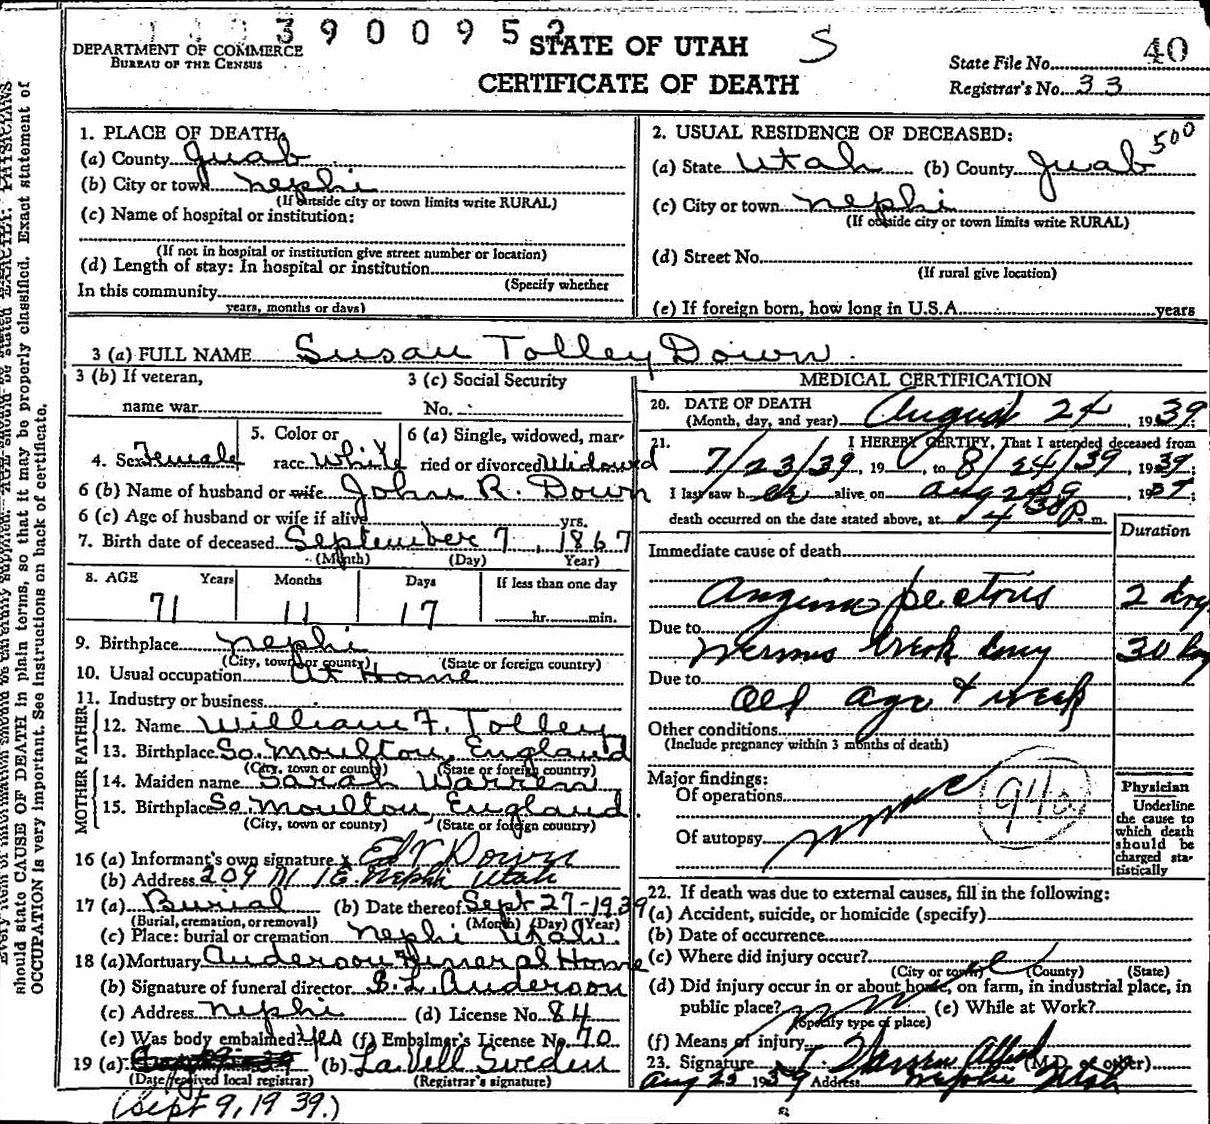 3 9 0 0 9 5 2
DEPARTMENT OF COMMERCE
BUREAU OF THE CENSUS
STATE OF UTAH
CERTIFICATE OF DEATH
S
40
State File No.
Registrar's No. 33
1. PLACE OF DEATH:
(a) County Juab
(b) City or town Nephi
(If outside city or town limits write RURAL)
(c) Name of hospital or institution:
(If not in hospital or institution give street number or location)
(d) Length of stay: In hospital or institution
(Specify whether
In this community
years, months or days)
2. USUAL RESIDENCE OF DECEASED:
500
(a) State Utah (b) County Juab
(c) City or town Nephi
(If outside city or town limits write RURAL)
(d) Street No.
(If rural give location)
(e) If foreign born, how long in U.S.A. years
3 (a) FULL NAME Susan Tolley Down
3 (b) If veteran,
name war
3 (c) Social Security
No.
4. Sex Female
5. Color or
race White
6 (a) Single, widowed, mar-
ried or divorced Widowed
6 (b) Name of husband or wife John R. Down
6 (c) Age of husband or wife if alive yrs.
7. Birth date of deceased September 7, 1867
(Month) (Day) Year)
8. AGE Years Months Days If less than one day
71 11 17 hr. min.
9. Birthplace Nephi
(City, town or county) (State or foreign country)
10. Usual occupation At Home
11. Industry or business
FATHER
12. Name William F. Tolley
13. Birthplace So. Moulton, England
(City, town or county) (State or foreign country)
MOTHER
14. Maiden name Sarah Warren
15. Birthplace So. Moulton, England
(City, town or county) (State or foreign country)
16 (a) Informant's own signature x Ed V Down
(b) Address 209 N 1 E Nephi Utah
17 (a) Burial (b) Date thereof Sept 27-1939
(Burial, cremation, or removal) (Month) (Day) (Year)
(c) Place: burial or cremation Nephi Utah.
18 (a) Mortuary Anderson Funeral Home
(b) Signature of funeral director E. L. Anderson
(c) Address Nephi (d) License No. 84
(e) Was body embalmed? Yes (f) Embalmer's License No. 70
19 (a) (b) LaVell Sweden
(Date received local registrar) (Registrar's signature)
(Sept 9, 1939.)
MEDICAL CERTIFICATION
20. DATE OF DEATH
(Month, day, and year) August 24, 1939
21. I HEREBY CERTIFY, That I attended deceased from
7/23/39, 19 , to 8/24/39, 1939;
I last saw her alive on Aug 24, 19
death occurred on the date stated above, at 4 30 P. m.
Duration
Immediate cause of death
Angina pectoris 2 dry
Due to
30
Due to
Old age & weak
Other conditions
(Include pregnancy within 3 months of death)
Major findings:
Of operations
Of autopsy none
Physician
Underline
the cause to
which death
should be
charged sta-
tistically
22. If death was due to external causes, fill in the following:
(a) Accident, suicide, or homicide (specify)
(b) Date of occurrence
(c) Where did injury occur?
(City or town) (County) (State)
(d) Did injury occur in or about home, on farm, in industrial place, in
public place? (e) While at Work?
(Specify type of place)
(f) Means of injury
23. Signature (M.D. or other)
Aug 25 1939 Address Nephi Utah
should state CAUSE OF DEATH in plain terms, so that it may be properly classified. Exact statement of
OCCUPATION is very important. See instructions on back of certificate.